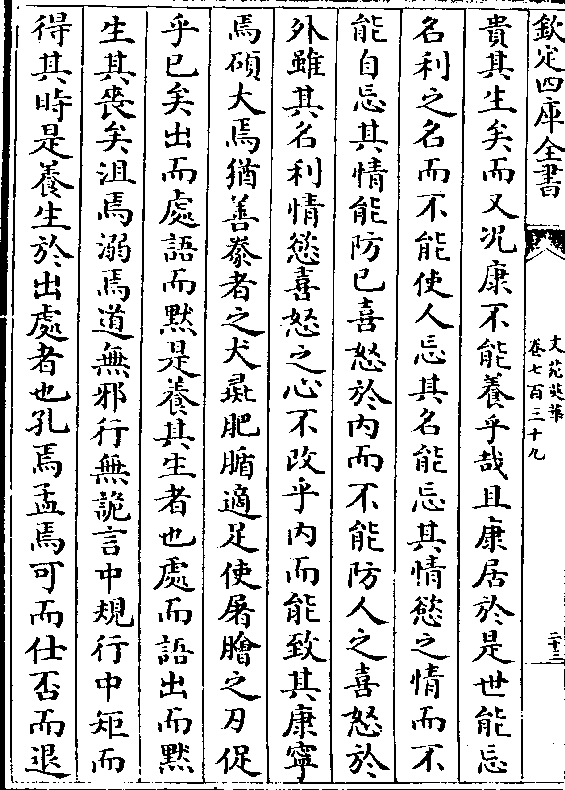 欽定四庫全書
文苑英華
卷七百三十九
二十三
貴其生矣而又况康不能養乎哉且康居於是世能忘
名利之名而不能使人忘其名能忘其情慾之情而不
能自忘其情能防已喜怒於內而不能防人之喜怒於
外雖其名利情慾喜怒之心不改乎內而能致其康寧
焉碩大焉猶善豢者之犬彘肥腯適足使屠膾之刃促
乎已矣出而處語而默是養其生者也處而語出而默
生其喪矣沮焉溺焉道無邪行無詭言中規行中矩而
得其時是養生於出處者也孔焉孟焉可而仕否而退